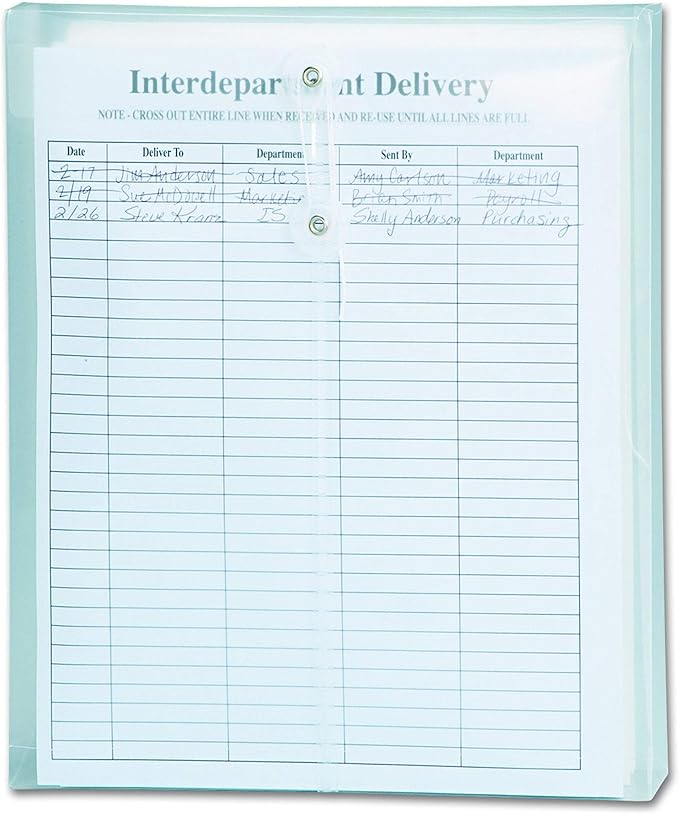 Interdepartment Delivery
NOTE - CROSS OUT ENTIRE LINE WHEN RECEIVED AND RE-USE UNTIL ALL LINES ARE FULL
Date Deliver To Department Sent By Department
2-17 Jim Anderson Sales Amy Carlson Marketing
2/19 Sue McDowell Marketing Brian Smith Payroll
2/26 Steve IS Shelly Anderson Purchasing